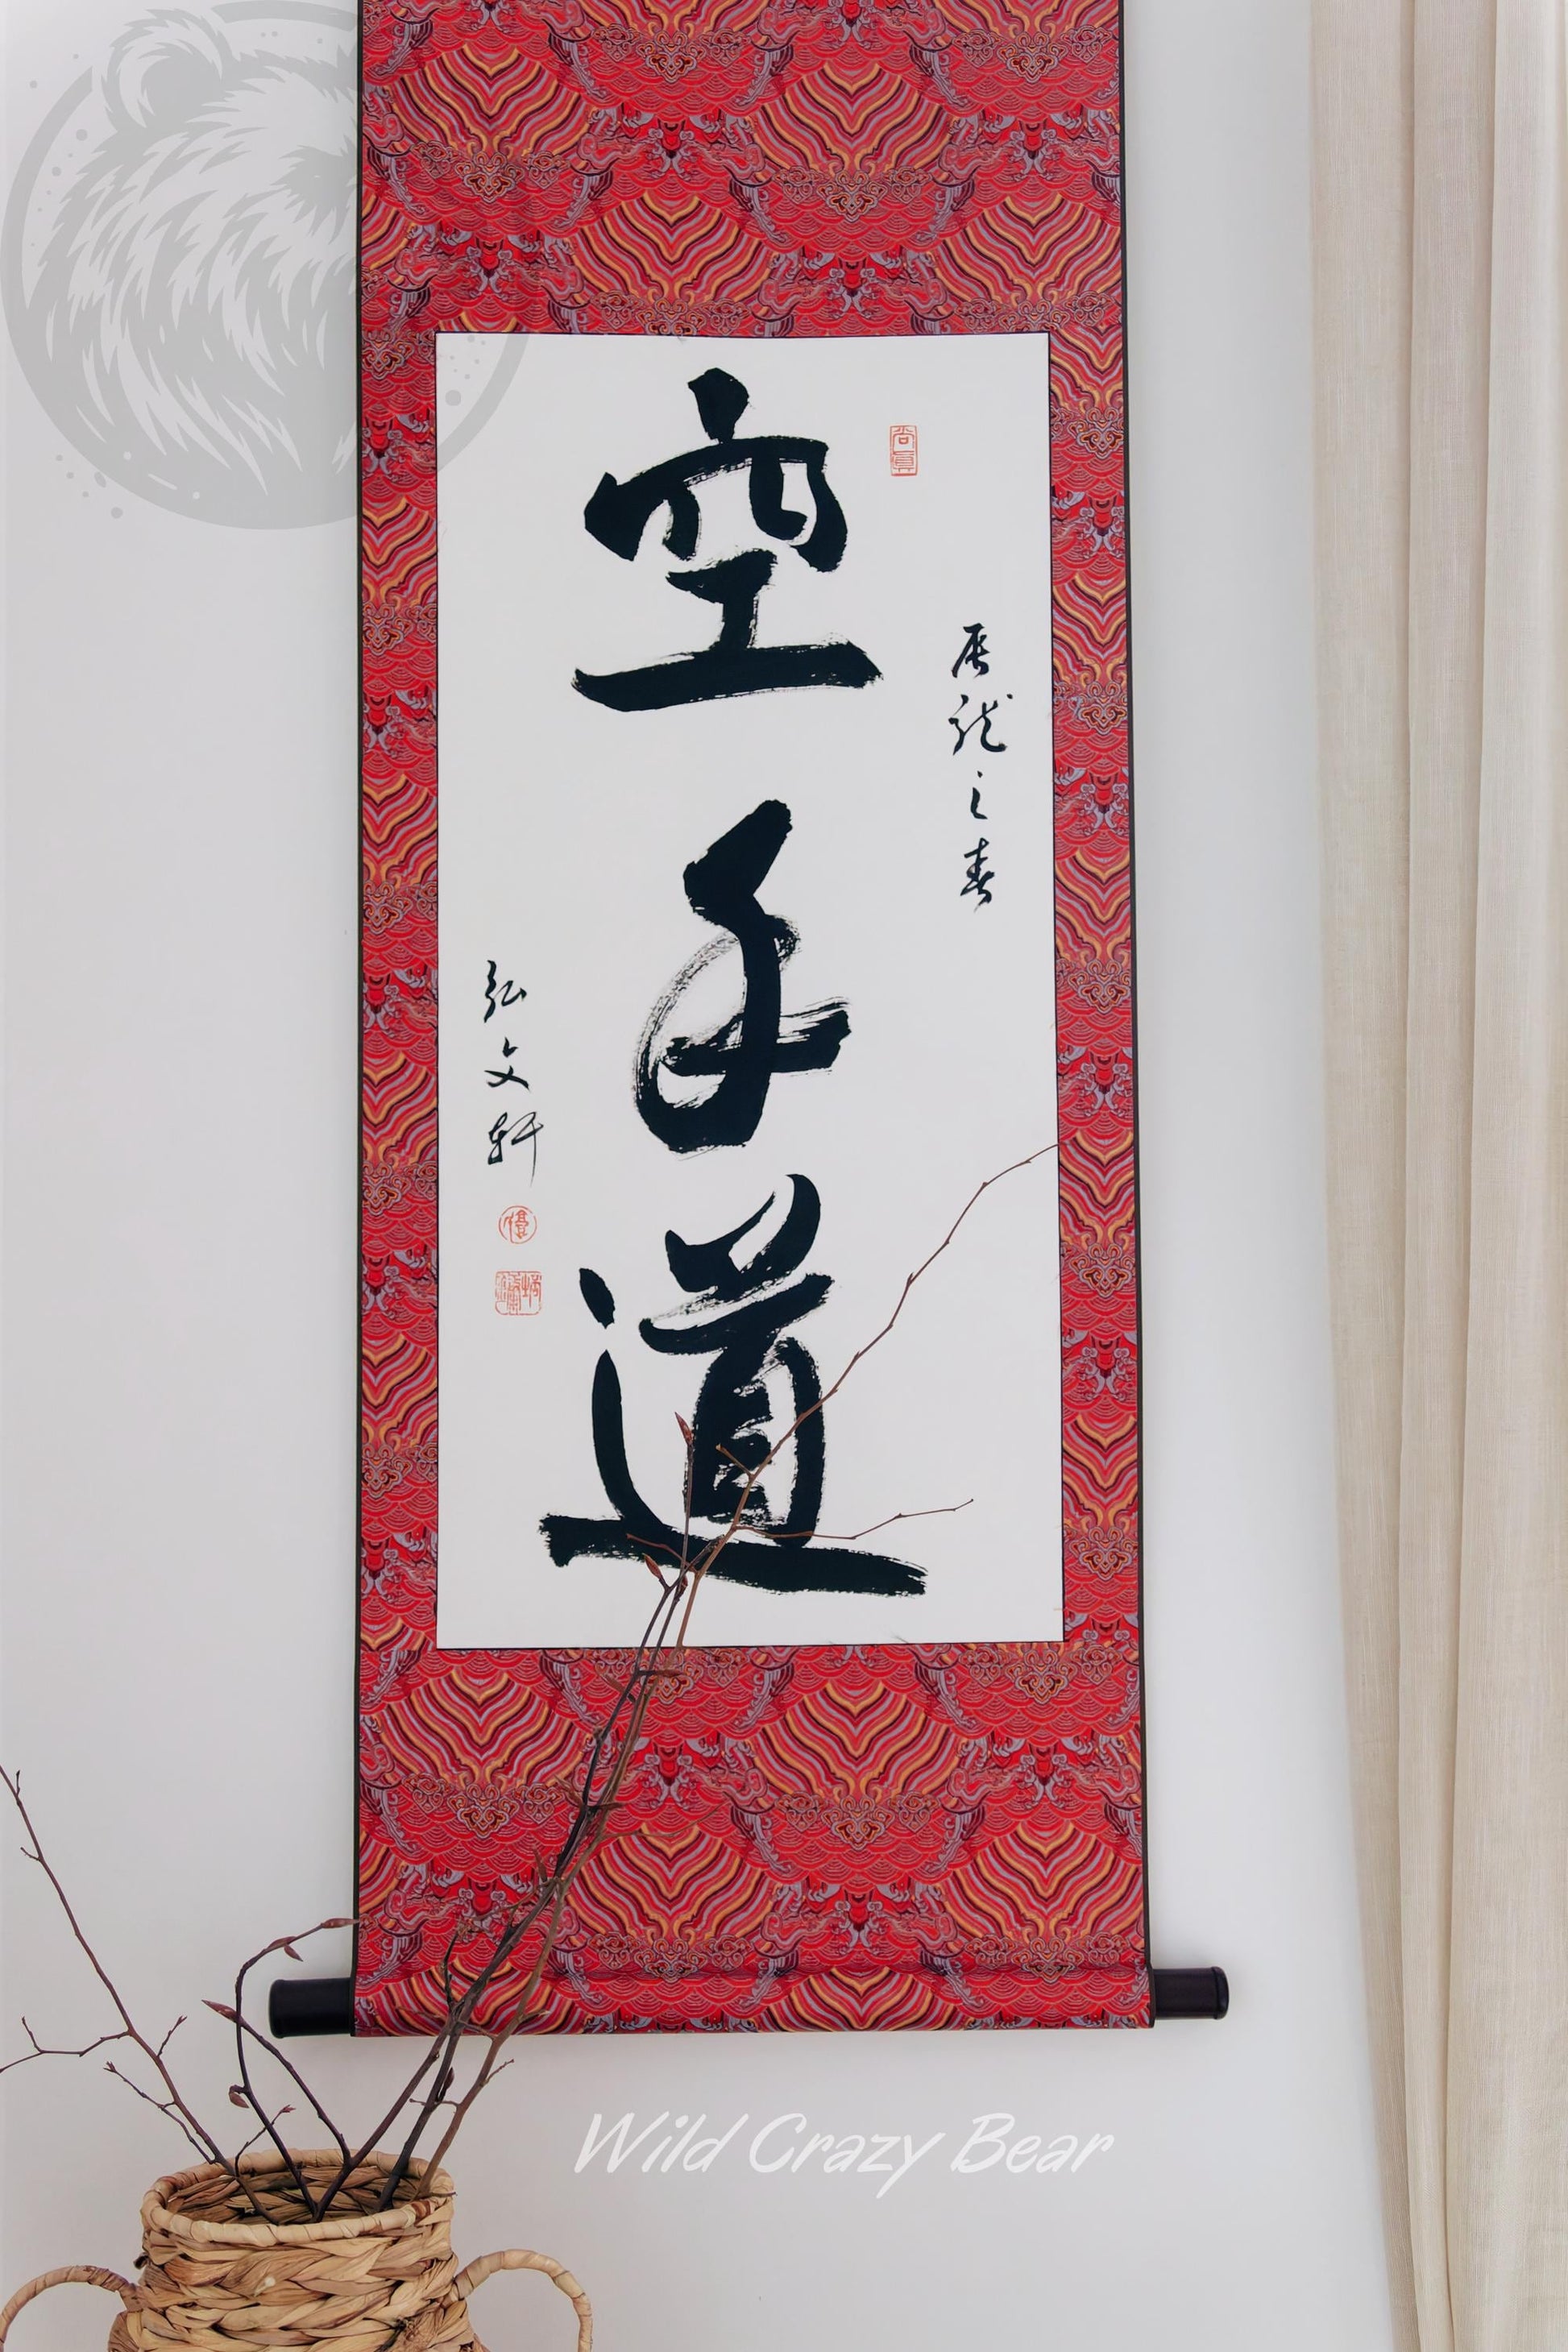 空手道
辰龍之春
弘文軒
尚真
Wild Crazy Bear